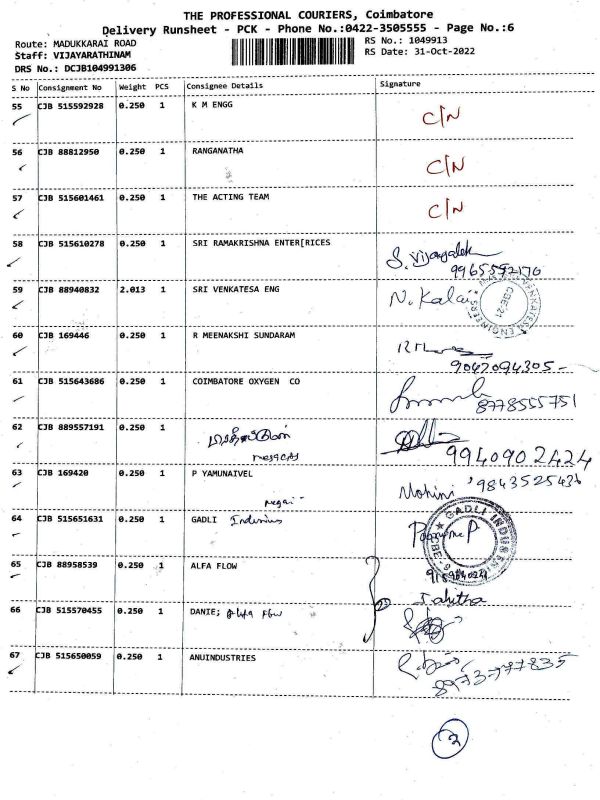 THE PROFESSIONAL COURIERS, Coimbatore
Delivery Runsheet - PCK - Phone No.:0422-3505555 - Page No.:6
Route: MADUKKARAI ROAD RS No.: 1049913
Staff: VIJAYARATHINAM RS Date: 31-Oct-2022
DRS No.: DCJB104991306
S No Consignment No Weight PCS Consignee Details Signature
55 CJB 515592928 0.250 1 K M ENGG C/N
56 CJB 88812950 0.250 1 RANGANATHA C/N
57 CJB 515601461 0.250 1 THE ACTING TEAM C/N
58 CJB 515610278 0.250 1 SRI RAMAKRISHNA ENTER[RICES
9965592170
59 CJB 88940832 2.013 1 SRI VENKATESA ENG N. Kalai
60 CJB 169446 0.250 1 R MEENAKSHI SUNDARAM
9047094305
61 CJB 515643686 0.250 1 COIMBATORE OXYGEN CO
8778555751
62 CJB 889557191 0.250 1
9940902424
63 CJB 169420 0.250 1 P YAMUNAIVEL Mohini 9843525436
64 CJB 515651631 0.250 1 GADLI
65 CJB 88958539 0.250 1 ALFA FLOW
66 CJB 515570455 0.250 1 DANIE; Alfa Flow
67 CJB 515650059 0.250 1 ANUINDUSTRIES
8973777835
2